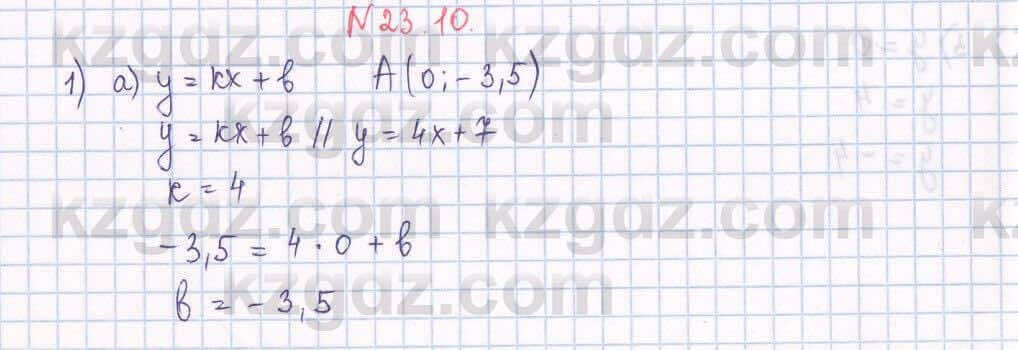 N 23.10.
1) а) y = kx + b A(0; -3,5)
y = kx + b // y = 4x + 7
k = 4
-3,5 = 4 · 0 + b
b = -3,5
kzgdz.com kzgdz.com
kzgdz.com kzgdz.com
kzgdz.com kzgdz.com
kzgdz.com